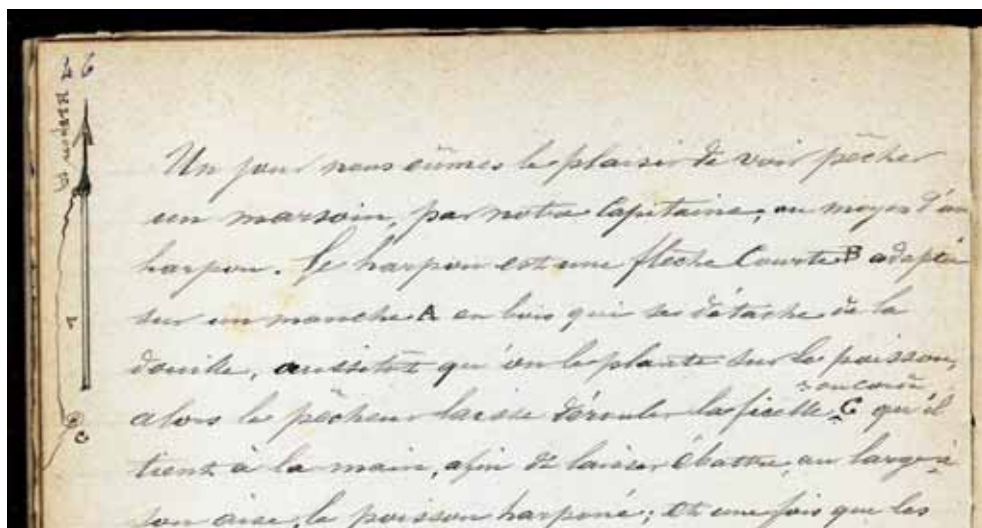 26
Harpon
A
C
Un jour nous eûmes le plaisir de voir pêcher
un marsoin, par notre Capitaine, au moyen d'un
harpon. Le harpon est une flèche Courte B adaptée
sur un manche A en bois qui se détache de la
douille, aussitot qu'on le plante sur le poisson,
ou corde
alors le pêcheur laisse dérouler la ficelle C qu'il
tient à la main, afin de laisser ébattre, au large à
son aise, le poisson harponé; et une fois que les